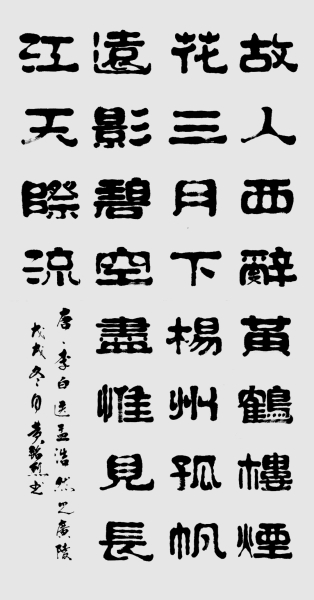 故人西辭黃鶴樓煙
花三月下楊州孤帆
遠影碧空盡惟見長
江天際流
唐、李白送孟浩然之廣陵
戊戌冬月黃 书